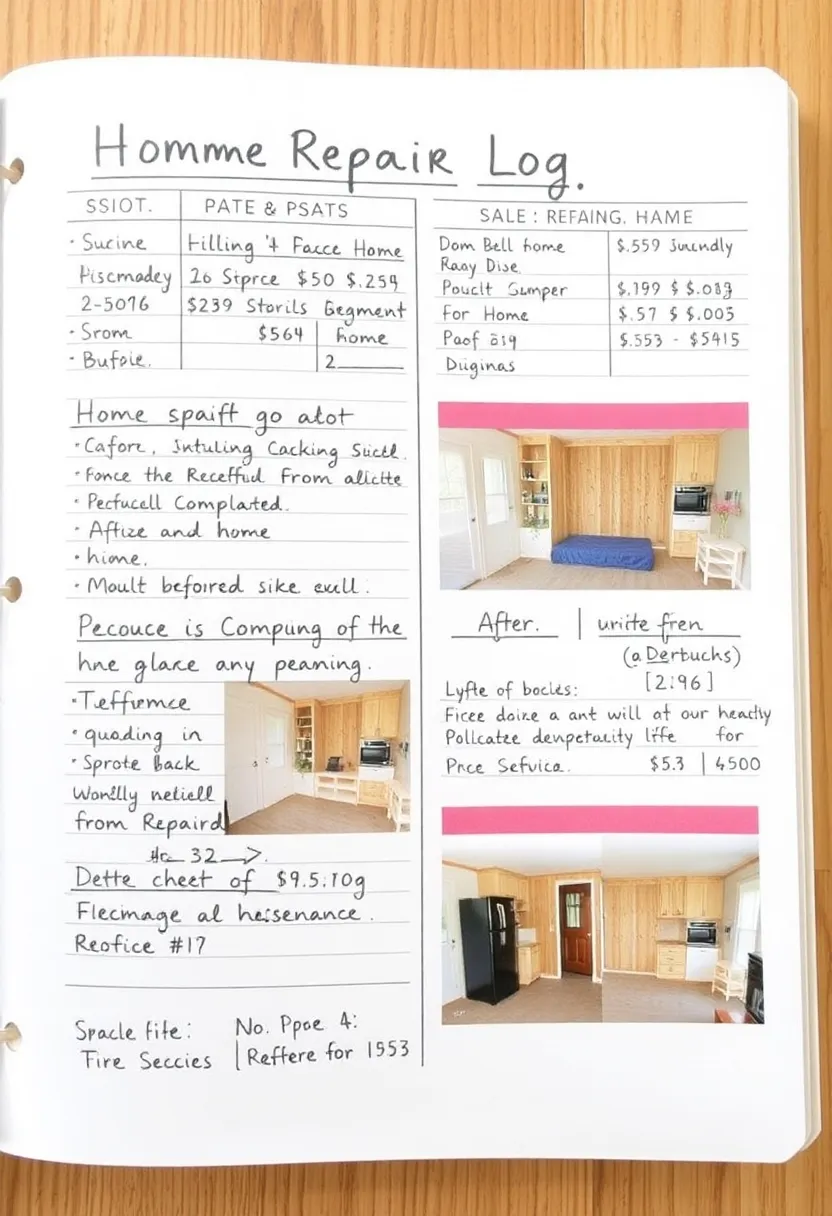 Homme Repair Log.
SSIOT. PATE & PSATS
· Sucine Filling '4 Facce Home
Piscmadey 26 Stprce $50 $.259
2-5076 $239 Storils Gegment
· Srom $564 home
· Bufoie. 2
Home spaift go atot
· Cafore, Intuling Cacking Sictl.
· Fonce the Receffud From alictte
· Pectucell Complated.
· Aftize and home
· hione.
· Moult befoired sike cull.
Pecouce is Compung of the
hne glace any peaning.
· Teffremce
· quading in
· Sprote Back
Wonlly netiell
from Repaird
32
Dette cheet of $9.5:10g
Flecmage al heisenance.
Reofice #17
Spacle fite: No. Ppoe 4:
Tire Seccies Reffere for 1553
SALE : REFAING. HAME
Dom Bell home $.559
Raay Dise
Pouclt Sumper $.199 $ $.089
For Home $.57 $ $.005
Paof $.553 - $5415
Duginas
After. | unite fren
(a Derbucks)
Lyfte of bocles: [2:96]
Ficee doize a ant will at our heactly
Pollcatze denpetacity liffe for
Pnce Sefvica. $5.3 | 4500